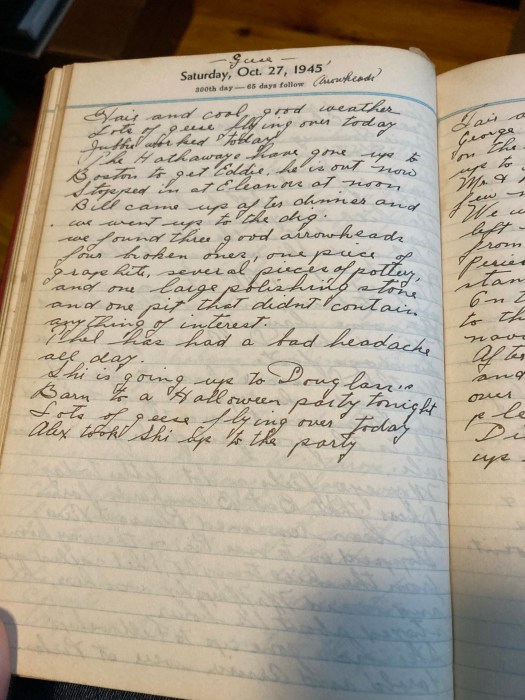 — Geese —
Saturday, Oct. 27, 1945
300th day — 65 days follow (Arrowheads)
Fair and cool good weather
Lots of geese flying over today
worked today
The Hathaways have gone up to
Boston to get Eddie, he is out now
Stopped in at Eleanors at noon
Bill came up after dinner and
we went up to the dig.
we found three good arrowheads
four broken ones, one piece of
graphite, several pieces of pottery,
and one large polishing stone
and one pit that didnt contain
anything of interest.
has had a bad headache
all day.
Shi is going up to Douglass's
Barn to a Halloween party tonight
Lots of geese flying over today
Alex took Shi up to the party
Fair a
George
on the
up to
Mr &
few
We w
left
from
Perio
stan
to th
nava
After
and
over
ple
Di
up